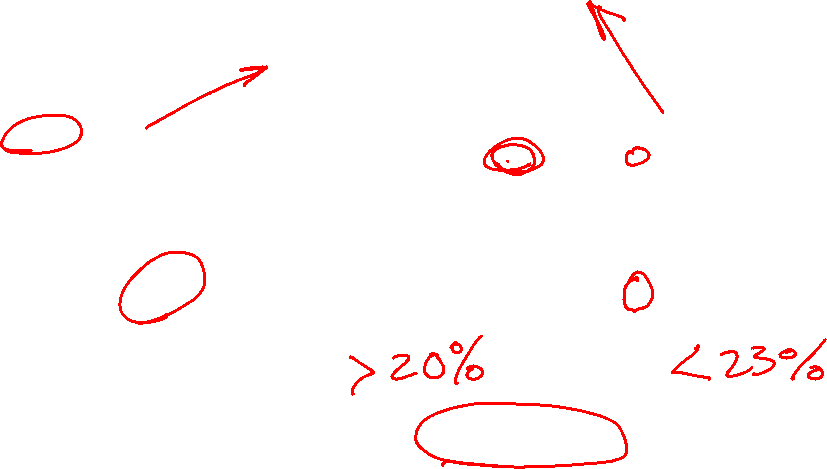 >20% <23%